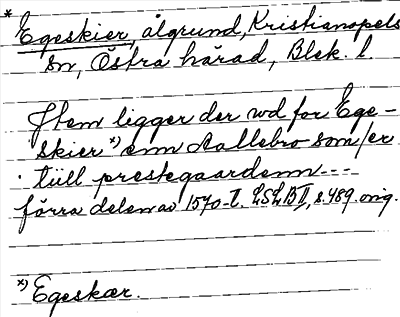 * Egeskier, ålgrund, Kristianopels
sn, Östra härad, Blek. l.
Jtem ligger der wd for Ege-
skier *) enn Aallebro som/er
tiill prestegaardenn ----
förra delen av 1570-t. LSLBII, s. 489. orig.
*) Egeskær.